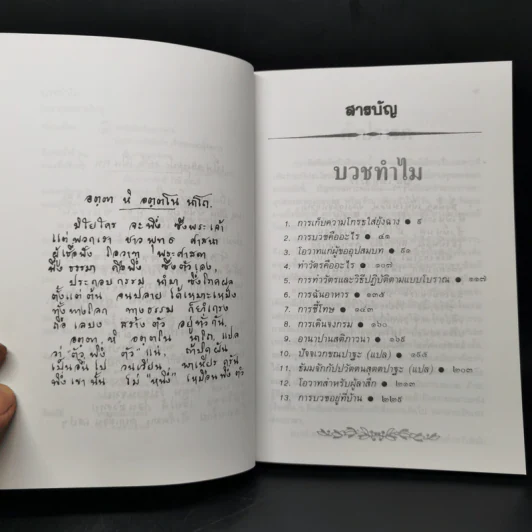 อตฺตา หิ อตฺตโน นาโถ.
มิใช่ใคร จะพึ่ง ซึ่งพระเจ้า
แต่พวกเรา ชาวพุทธ ศาสนา
พึ่งธรรมา คือพึ่ง ซึ่งตัวเอง
ประกอบกรรม
ตั้งแต่ต้น จนปลาย ได้เหมาะเหม็ง
ทั้งทางโลก ทางธรรม
สร้างตัว อยู่ทั่วกัน
อตฺตา หิ อตฺตโน นาโถ, แปล
ว่า ตัวพึ่ง ตัว
เหมือนพึ่งตัว
สารบัญ
บวชทำไม
1. การเก็บความโกรธใส่ยุ้งฉาง ● ๙
2. การบวชคืออะไร ● ๔๑
3. โอวาทแก่ผู้ขออุปสมบท ● ๙๑
4. ทำวัตรคืออะไร ● ๑๐๗
5. การทำวัตรและวิธีปฏิบัติตามแบบโบราณ ● ๑๑๗
6. การฉันอาหาร ● ๑๓๕
7. การชี้โทษ ● ๑๔๓
8. การเดินจงกรม ● ๑๖๐
9. อานาปานสติภาวนา ● ๑๖๖
10. ปัจจเวกขณปาฐะ (แปล) ● ๑๙๕
11. ธัมมจักกัปปวัตตนสุตตปาฐะ (แปล) ● ๒๐๓
12. โอวาทสำหรับผู้ลาสึก ● ๒๑๓
13. การบวชอยู่ที่บ้าน ● ๒๒๕